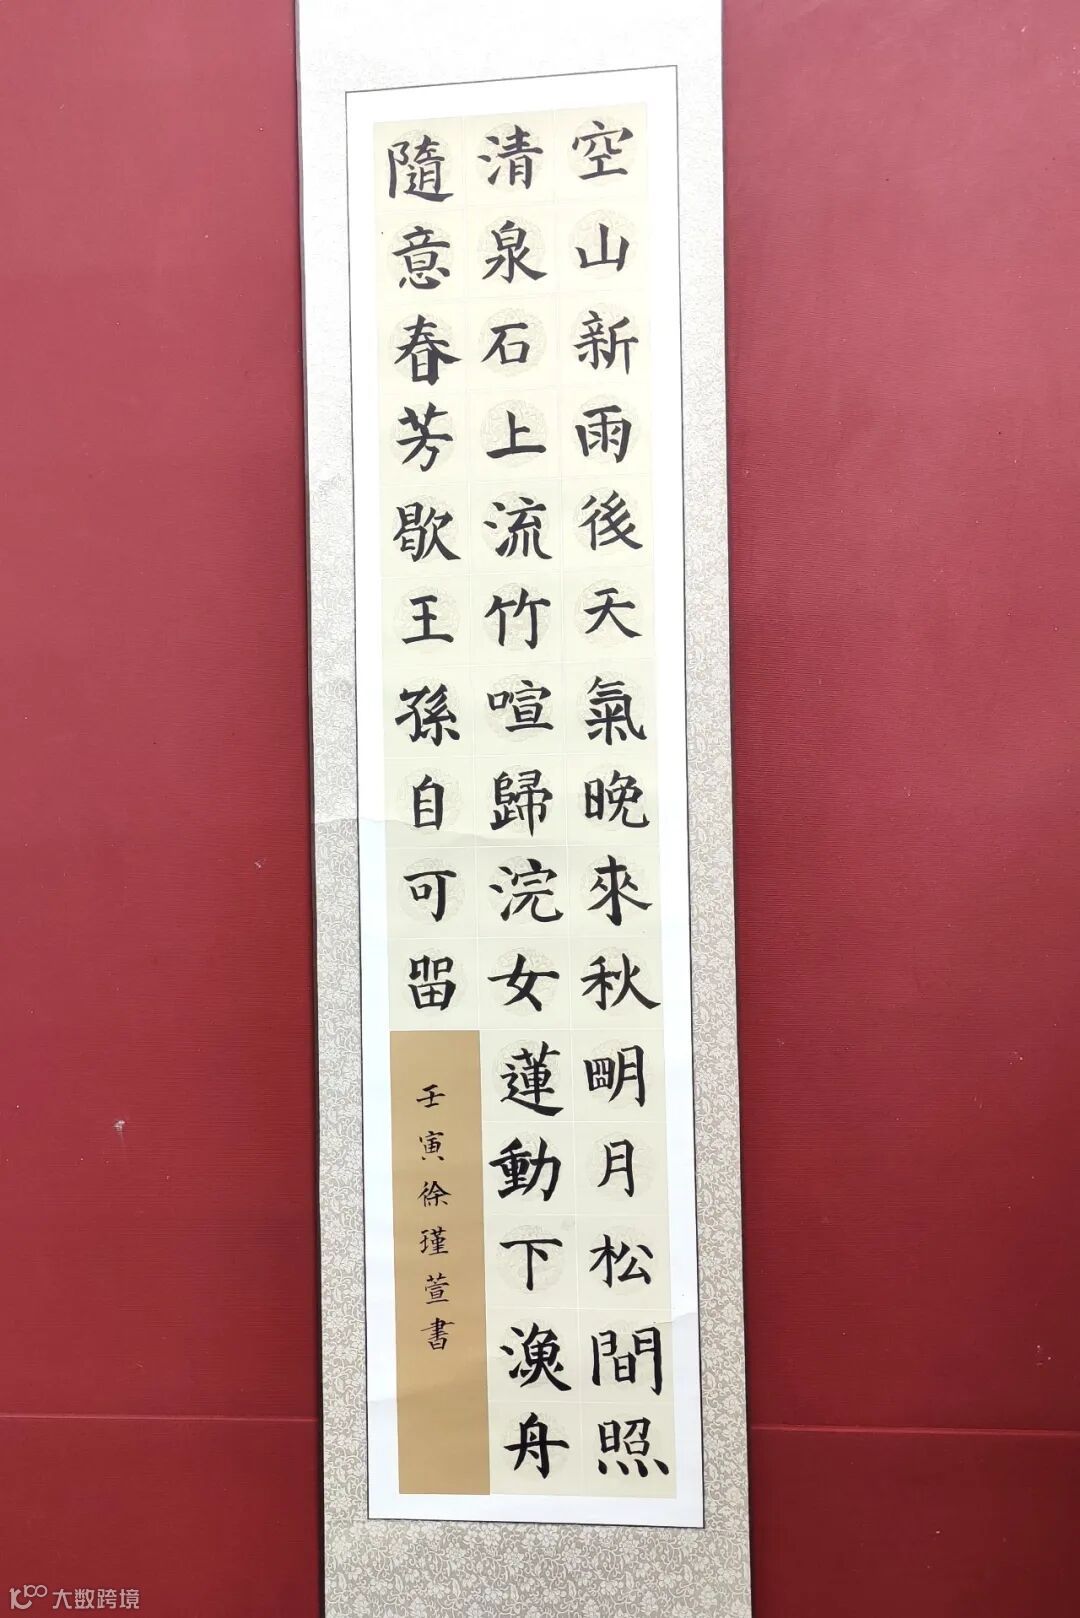 空山新雨後天氣晚來秋明月松間照
清泉石上流竹喧歸浣女蓮動下漁舟
隨意春芳歇王孫自可留
壬寅徐瑾萱書
大数跨境